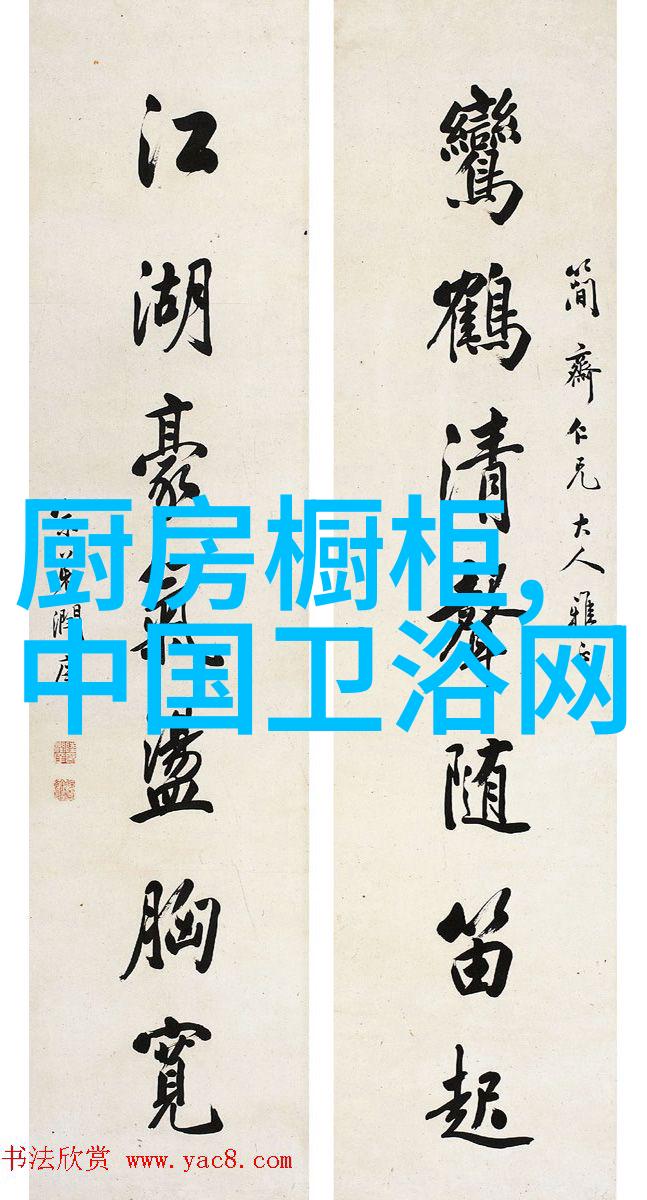 簡齋仁兄大人雅
鸞鶴清聲随笛起
江湖豪氣盪胸寬
弟潤
厨房橱柜,
中国卫浴网
书法欣赏 www.yac8.com